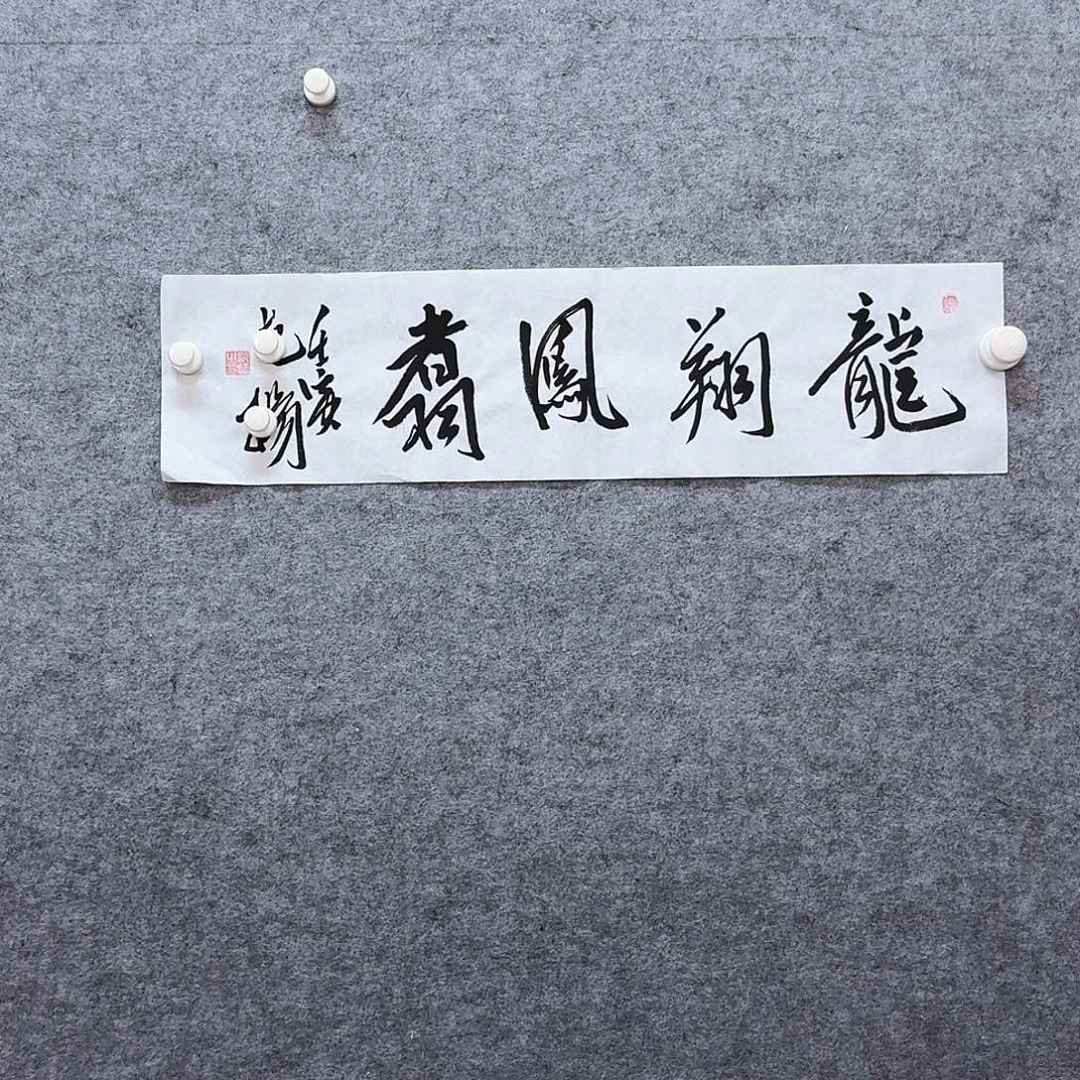 龍翔鳳翥
壬寅